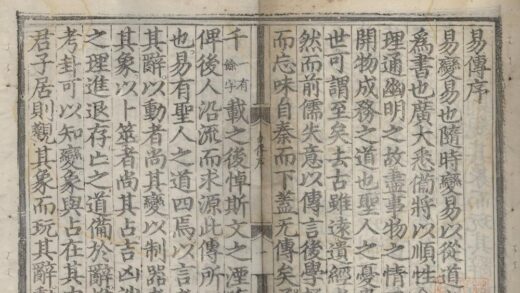 易傳序
易變易也隨時變易以從道
爲書也廣大悉備將以順性
理通幽明之故盡事物之情
開物成務之道也聖人之憂
世可謂至矣去古雖遠遺經
然而前儒失意以傳言後學
而忘味自秦而下蓋无傳矣
千一有餘字載之後悼斯文之湮
俾後人沿流而求源此傳所
也易有聖人之道四焉以言
其辭以動者尚其變以制器
其象以卜筮者尚其占吉凶
之理進退存亡之道備於辭
考卦可以知變象與占在其
君子居則觀其象而玩其辭